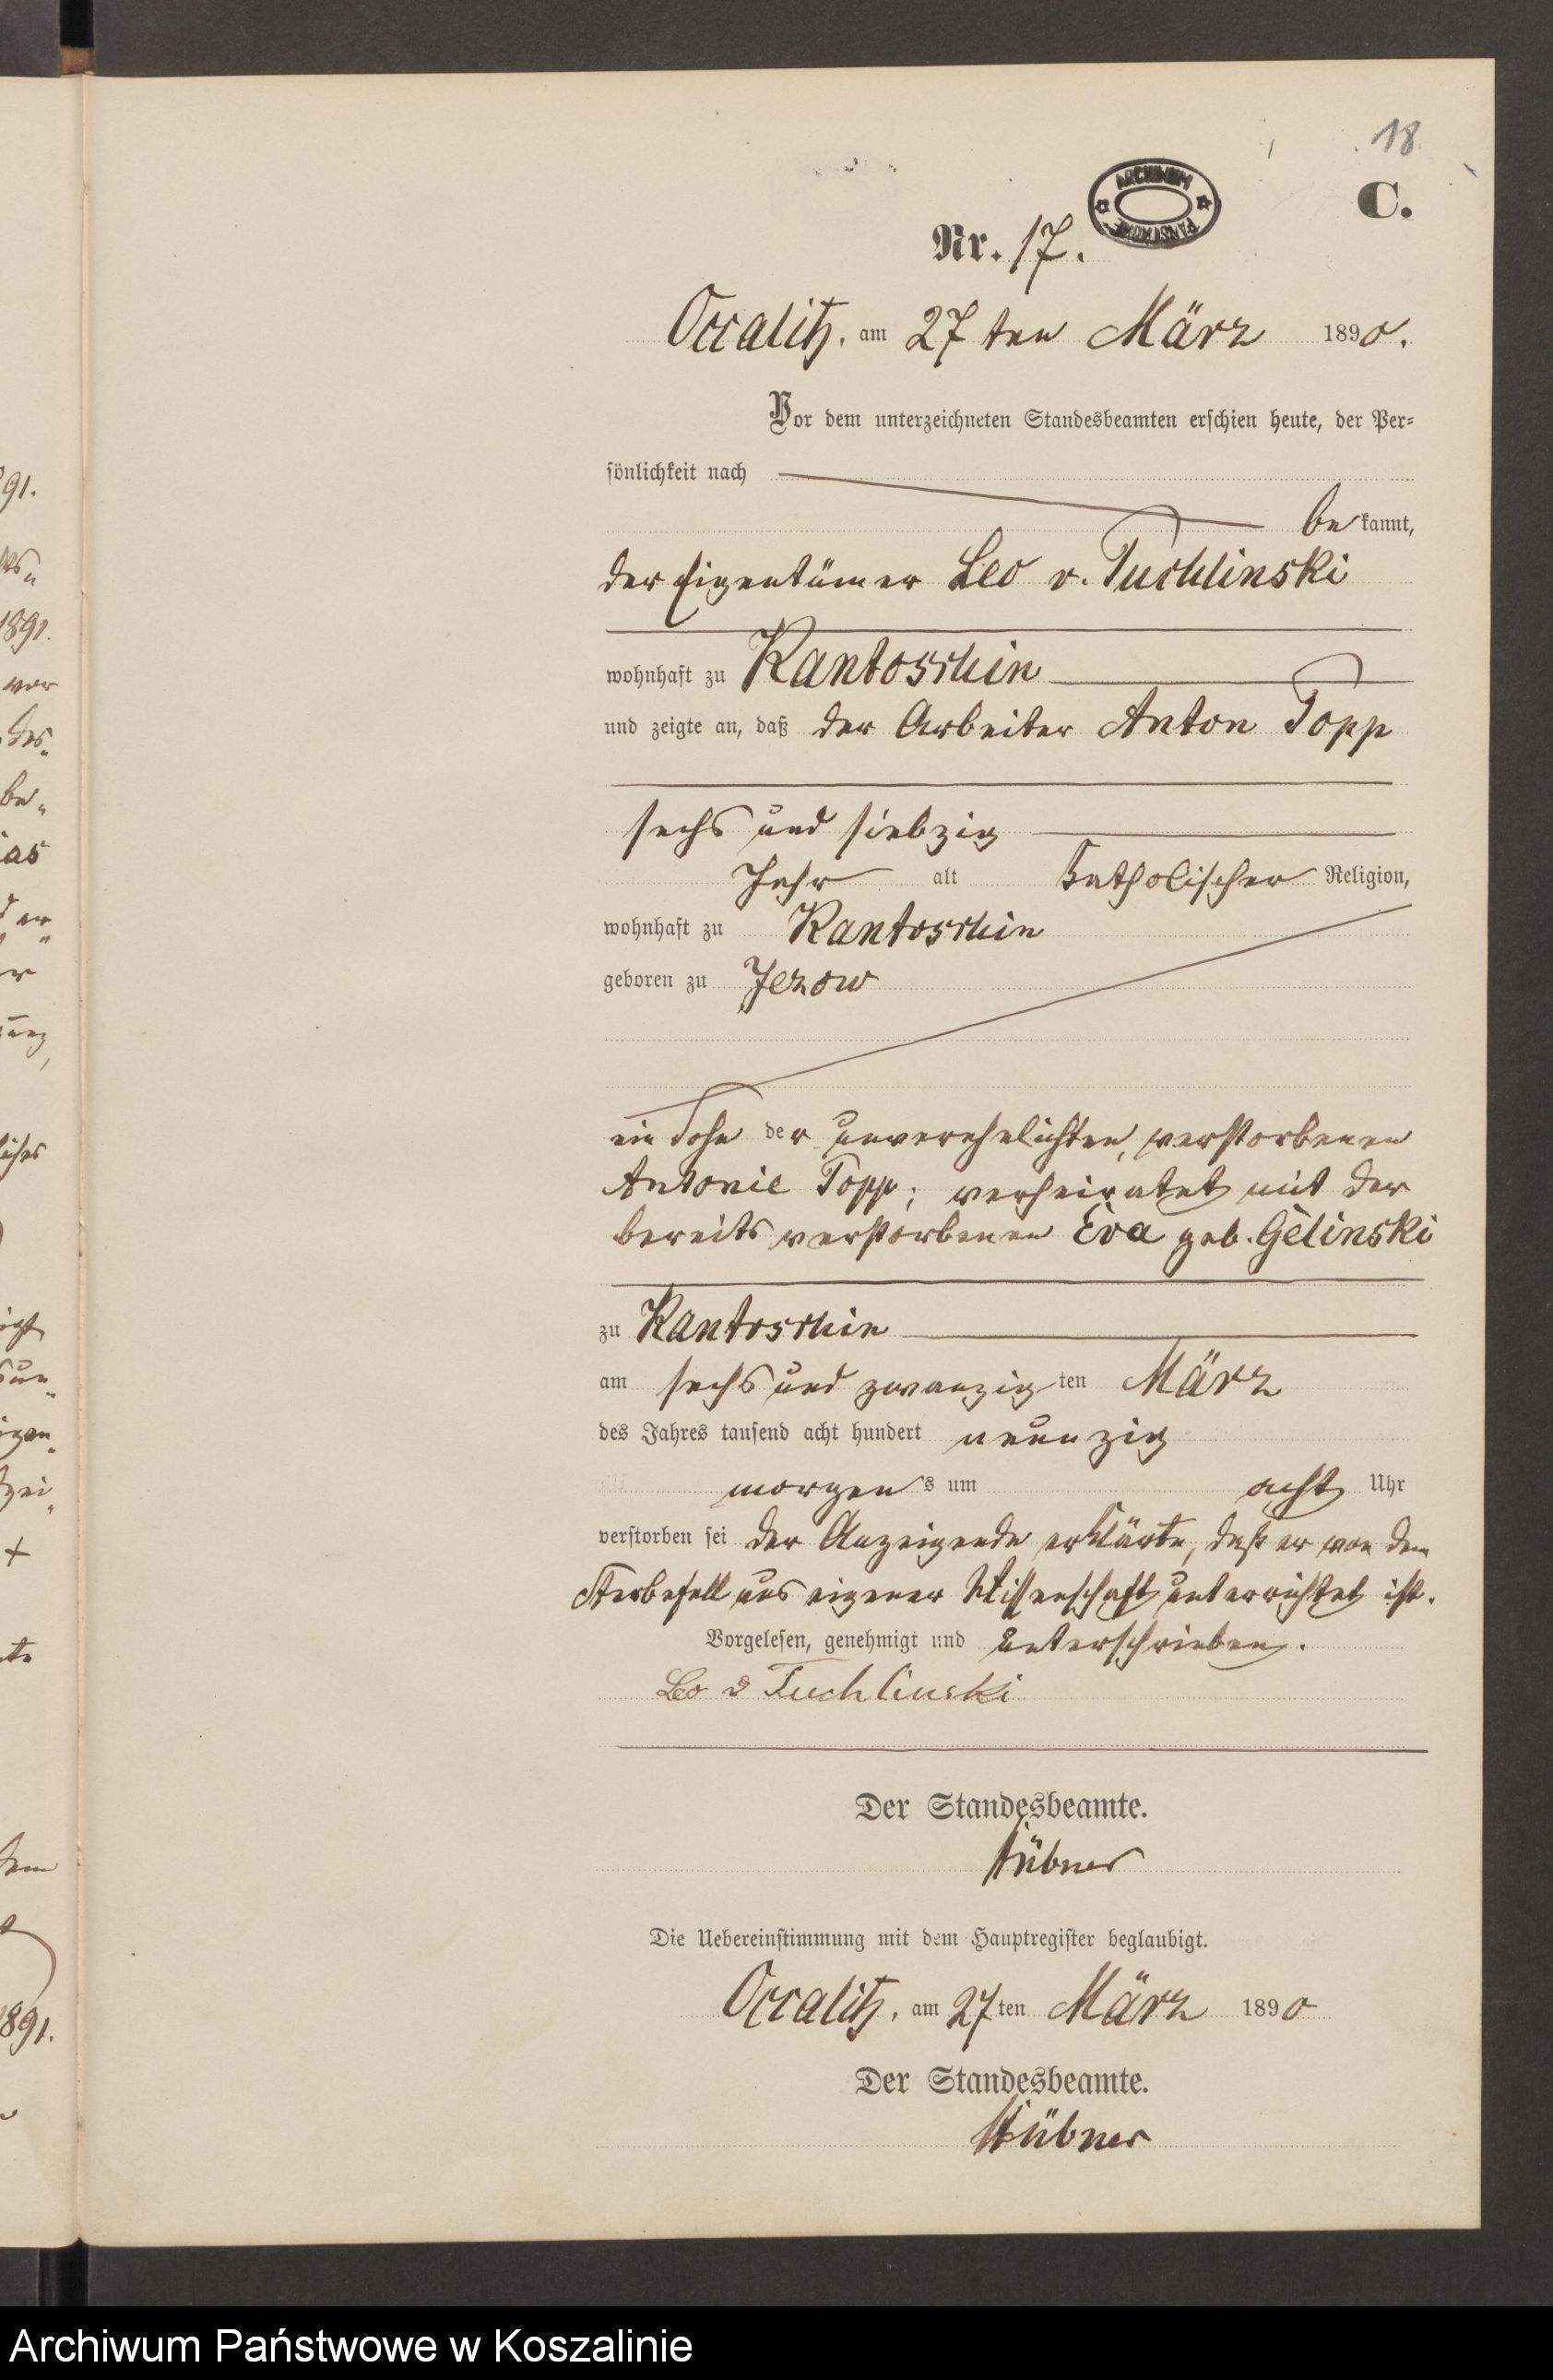 18
ARCHIWUM PAŃSTWOWE
C.
Nr. 17.
Occalitz, am 27 ten März 1890.
Vor dem unterzeichneten Standesbeamten erschien heute, der Per-
sönlichkeit nach
bekannt,
der Eigentümer Leo v. Tuchlinski
wohnhaft zu Kantoschin
und zeigte an, daß der Arbeiter Anton Topp
sechs und siebzig
Jahr alt katholischer Religion,
wohnhaft zu Kantoschin
geboren zu Jezow
ein Sohn der unverehelichten, verstorbenen
Antonie Topp; verheiratet mit der
bereits verstorbenen Eva geb. Gelinski
zu Kantoschin
am sechs und zwanzigten März
des Jahres tausend acht hundert neunzig
morgens um acht Uhr
verstorben sei der Anzeigende erklärte, daß er von dem
Sterbefall aus eigener Wissenschaft unterrichtet ist.
Vorgelesen, genehmigt und unterschrieben.
Leo v Tuchlinski
Der Standesbeamte.
Hübner
Die Uebereinstimmung mit dem Hauptregister beglaubigt.
Occalitz, am 27 ten März 1890
Der Standesbeamte.
Hübner
91.
1891.
vor
des-
be-
ias
1891.
Archiwum Państwowe w Koszalinie